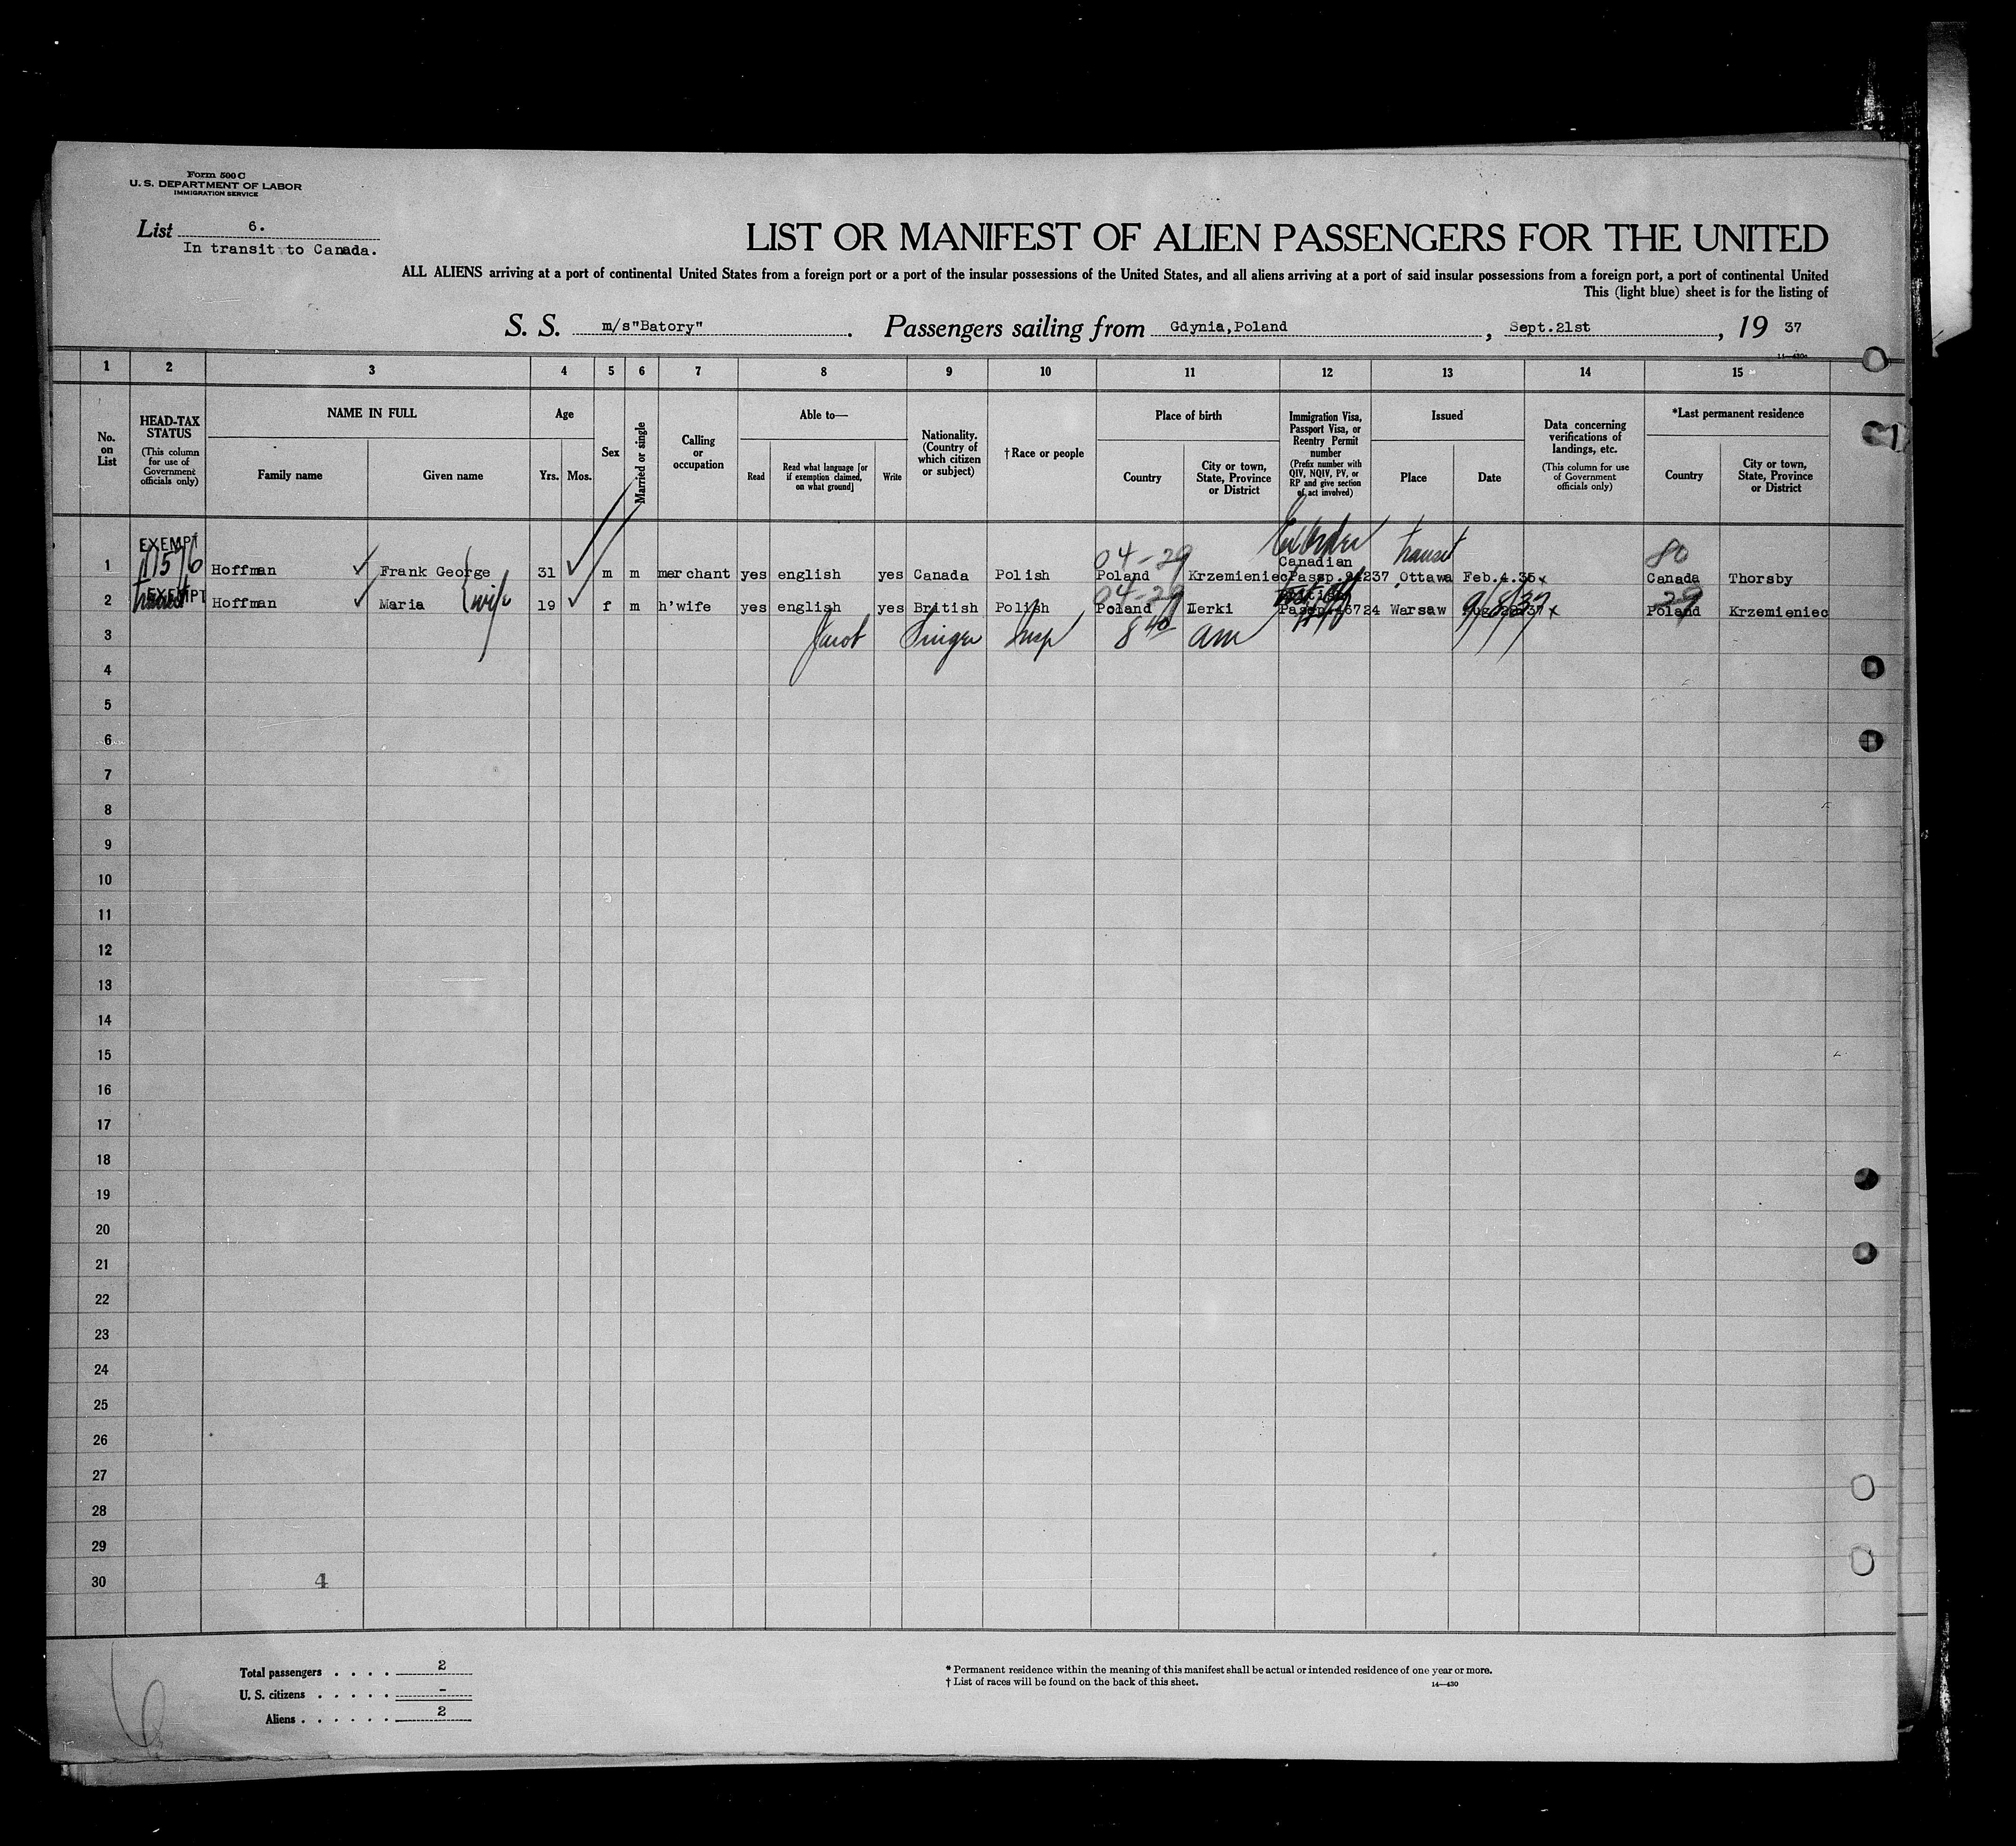 Form 500 C
U. S. DEPARTMENT OF LABOR
IMMIGRATION SERVICE
List 6.
In transit to Canada.
LIST OR MANIFEST OF ALIEN PASSENGERS FOR THE UNITED
ALL ALIENS arriving at a port of continental United States from a foreign port or a port of the insular possessions of the United States, and all aliens arriving at a port of said insular possessions from a foreign port, a port of continental United
This (light blue) sheet is for the listing of
S. S. m/s"Batory". Passengers sailing from Gdynia,Poland, Sept.21st, 19 37
1 2 3 4 5 6 7 8 9 10 11 12 13 14 15
No. on List
HEAD-TAX STATUS (This column for use of Government officials only)
NAME IN FULL
Family name Given name
Age
Yrs. Mos.
Sex
Married or single
Calling or occupation
Able to—
Read Read what language [or if exemption claimed, on what ground] Write
Nationality. (Country of which citizen or subject)
† Race or people
Place of birth
Country City or town, State, Province or District
Immigration Visa, Passport Visa, or Reentry Permit number (Prefix number with QIV, NQIV, PV, or RP and give section of act involved)
Issued
Place Date
Data concerning verifications of landings, etc. (This column for use of Government officials only)
*Last permanent residence
Country City or town, State, Province or District
EXEMPT 04-29 transit 80
1 Hoffman Frank George 31 m m merchant yes english yes Canada Polish Poland Krzemieniec Canadian Passp. 94237 Ottawa Feb.4.35 x Canada Thorsby
EXEMPT wife 04-29 29
2 Hoffman Maria 19 f m h'wife yes english yes British Polish Poland Passp. 46724 Warsaw x Poland Krzemieniec
3 Jacob Singer Insp 8 40 am
4
5
6
7
8
9
10
11
12
13
14
15
16
17
18
19
20
21
22
23
24
25
26
27
28
29
30 4
Total passengers . . . . 2
U. S. citizens . . . . . -
Aliens . . . . . . 2
* Permanent residence within the meaning of this manifest shall be actual or intended residence of one year or more.
† List of races will be found on the back of this sheet. 14—430